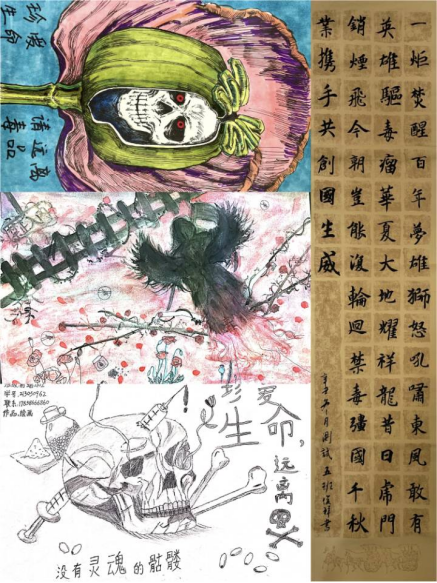 珍爱
生命
请远离毒品
作品:绘画
珍爱
生命,
远离
没有灵魂的骷髅
一炬焚醒百年夢雄獅怒吼嘯東風敢有
英雄驅毒瘤華夏大地耀祥龍昔日虎門
銷煙飛今朝豈能復輪迴禁毒彊國千秋
業携手共創國生威